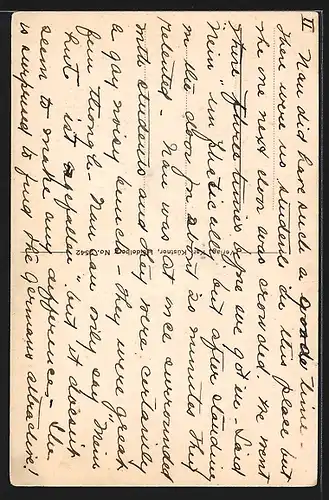 II Nan did have such a good time -
there were no students in this place but
the one next door was crowded. We went
there three times before we got in - Said
Nein "in Spezielle", but after standing
in the door for about 20 minutes they
relented - Nan was at once surrounded
with students and they were certainly
a gay noisy bunch - they were great
fun though - Nan can only say "Mein
hut ist gefallen" but it doesn't
seem to make any difference. She
is surprised to find the Germans attractive!
Verlag Küstner, Heidelberg No. 542